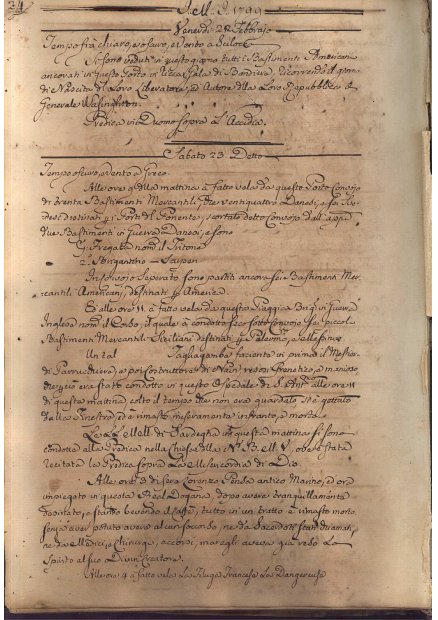 34
Nell. S. 1799
Venerdì 22 Febbrajo
Tempo frà chiaro, e oscuro, e vento a Scilocco
Si sono veduti in questo giorno tutti i Bastimenti Americani
ancorati in questo Porto in Gala di Bandiera, Ricorrendo il giorno
di Nascita di Loro Liberatore, ed Autore della Loro Repubblica il
Generale Wasington.
Predica in Duomo sopra L'Accidia.
Sabato 23 Detto
Tempo oscuro, e Vento a Greco
Alle ore 9 della mattina à fatto vela da questo Porto Convojo
di trenta Bastimenti Mercantili, che ventiquattro Danesi, e sei Sve-
desi destinati p. i Porti di Ponente, scortato detto Convojo dall'app.
due Bastimenti in Guerra Danesi, e sono
1. Fregata nom. il Tritone
2. Brigantino
In Convojo Separato sono partiti ancora sei Bastimenti Mer-
cantili Americani, destinati p. America
E alle ore 11 à fatto vela da questa Piaggia Brig. in Guerra
Inglese nom. il Corbo, il quale à condotto seco sotto Convojo sei piccoli
Bastimenti Mercantili Siciliani destinati p. Palermo, e Messina
Un tal Tagliagamba faciente in prima il Mestier
di Parrucchiere, e poi Costruttore di Navi reson frenetico, e maniaco
che già era stato condotto in questo Ospedale di S. Ant. alle ore 11
di questa mattina colto il tempo che non era guardato si è gettato
dalla finestra, ed è rimasto miseramente infranto, e morto.
Le LL. MM. di Sardegna in questa mattina si sono
condotte alla Predica nella Chiesa della N. B. M. V., ove è stata
recitata la Predica sopra La Misericordia di Dio.
Alle ore 3 di sera Lorenzo Penda antico Marino, ed ora
impiegato in questa Real Dogana, dopo avere tranquillamente
desinato, e stando bevendo il Caffè, tutto in un tratto è rimasto morto,
senza aver potuto avere alcun soccorso, ne da Sacerdoti stati chiamati,
ne da Medici, e Chirurgi, accorsi, ma egli aveva già reso Lo
Spirito al suo Divin Creatore.
Alle ore 4 à fatto vela La Fluga Francese Les Dangereuse